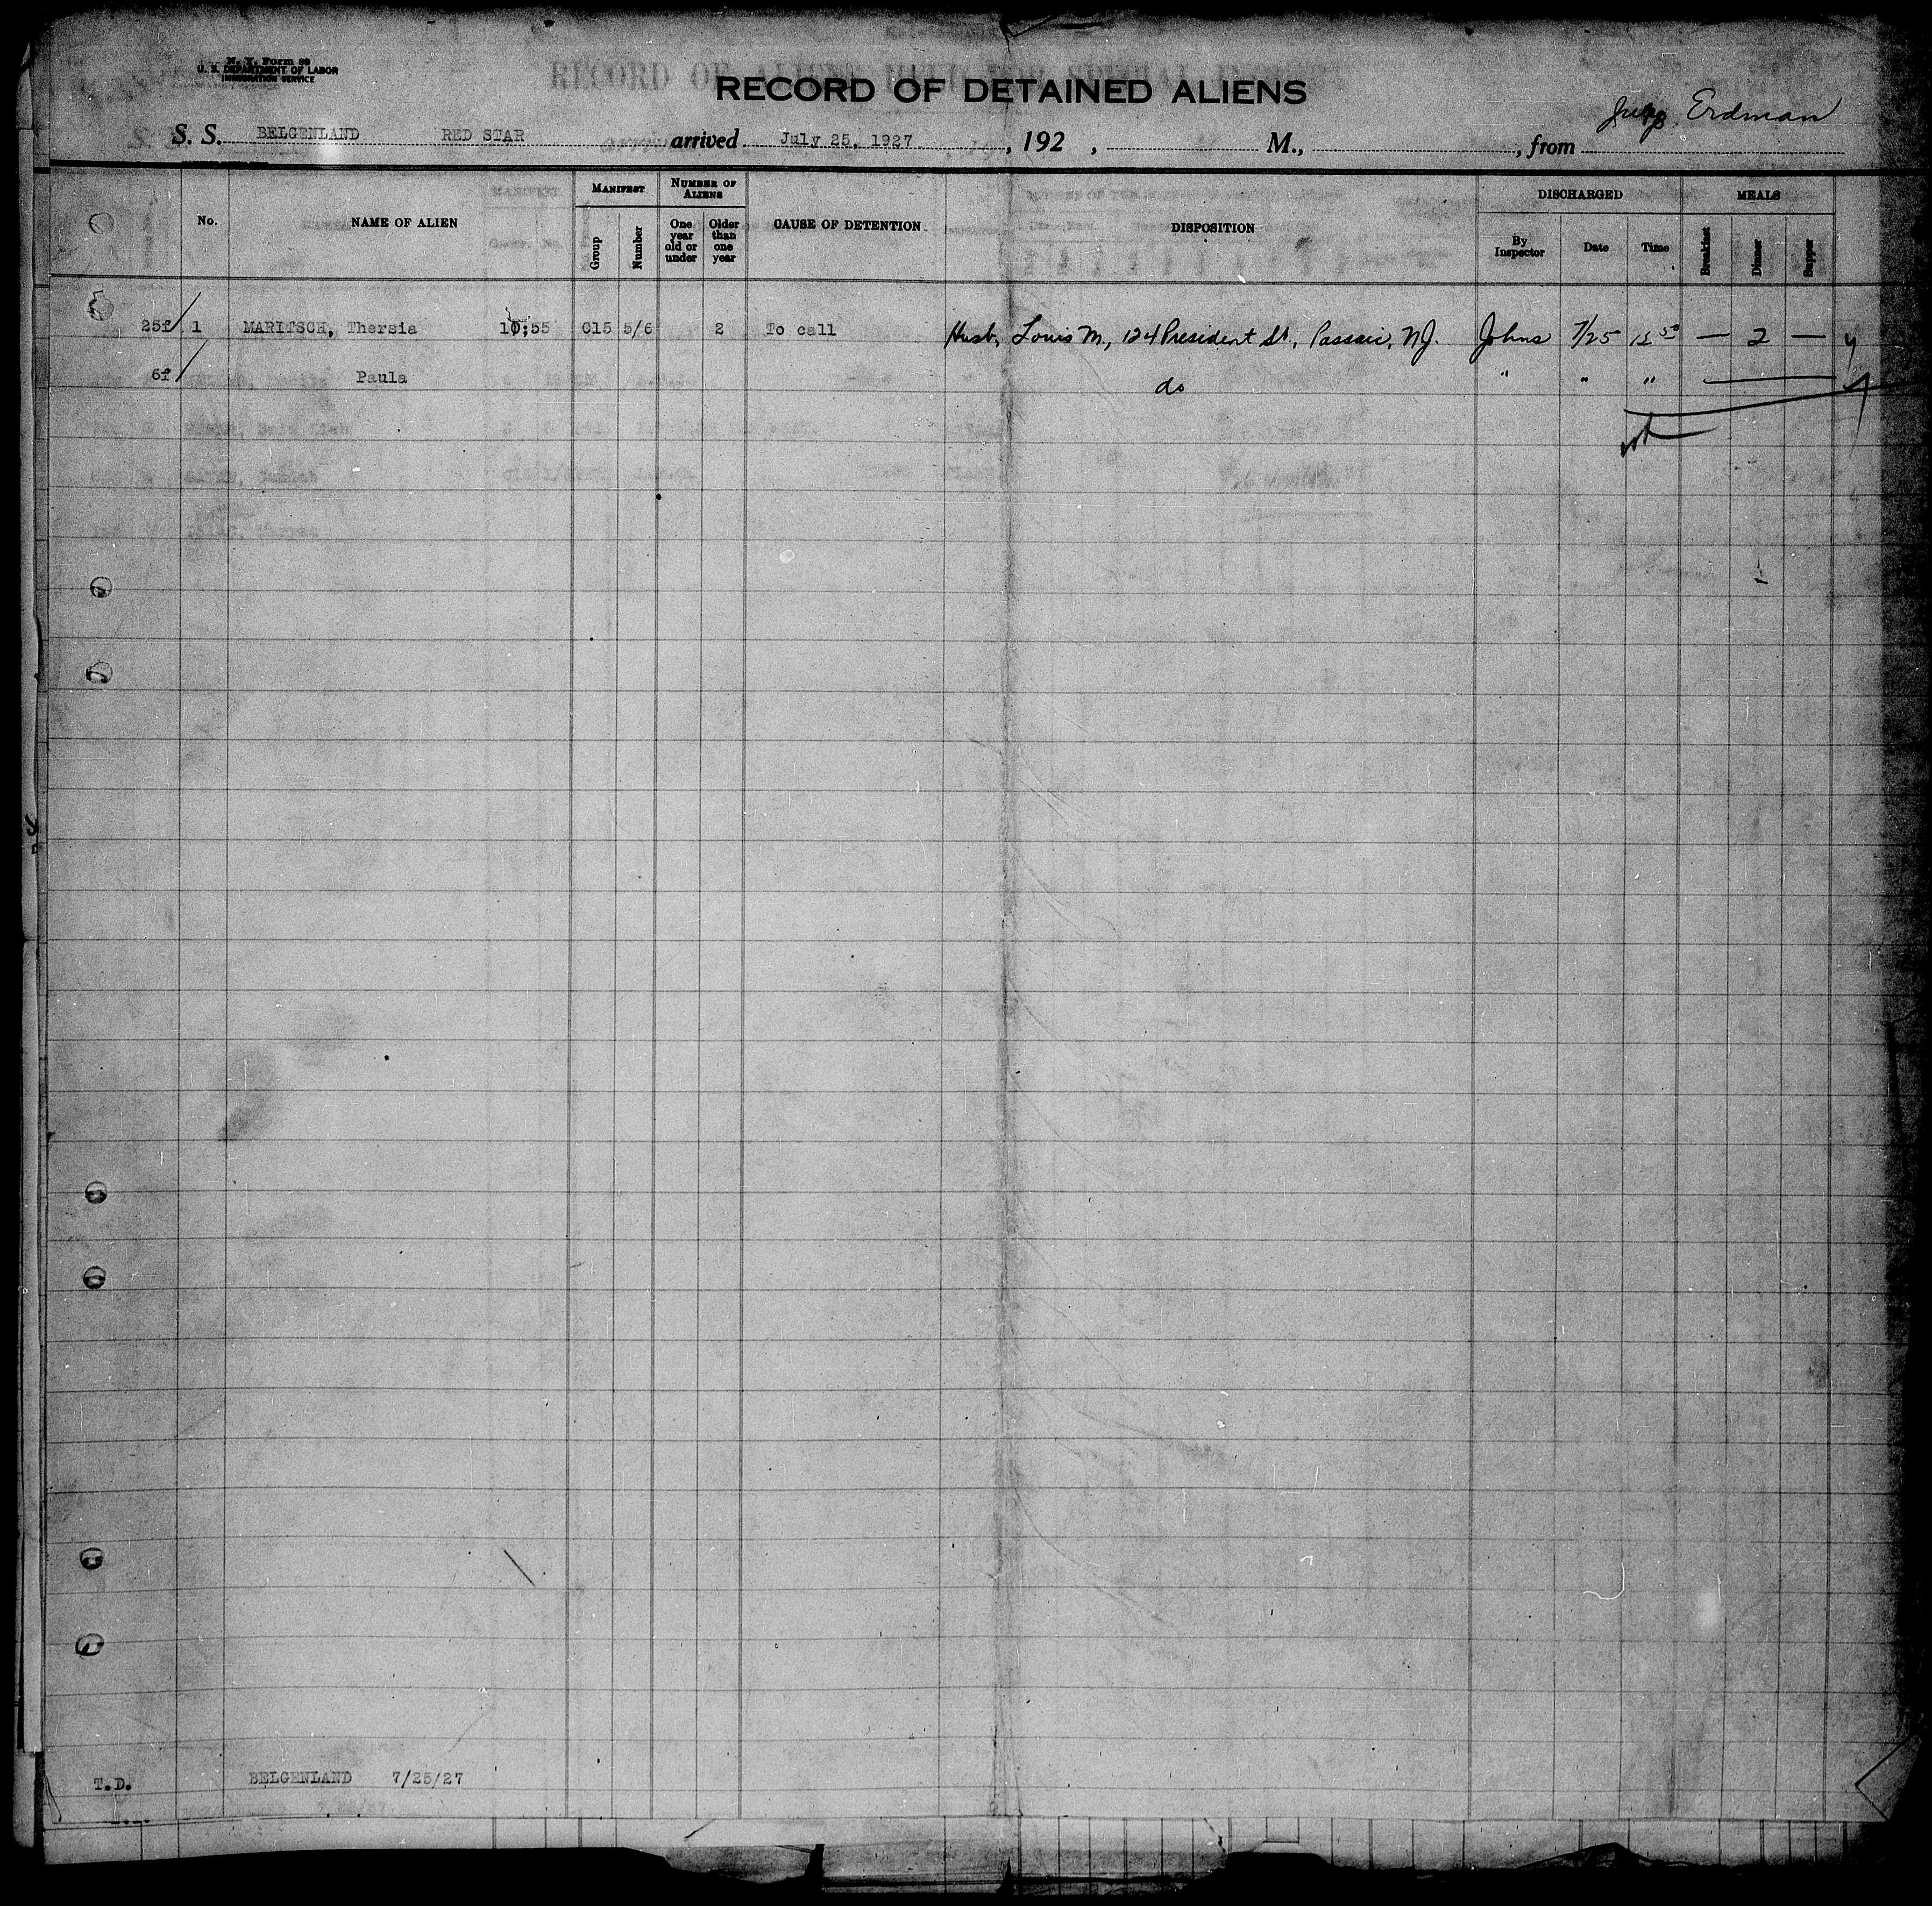 N. Y. Form 89
U. S. DEPARTMENT OF LABOR
IMMIGRATION SERVICE
RECORD OF DETAINED ALIENS
Erdman
S. S. BELGENLAND RED STAR arrived July 25, 1927, 192 , M., , from
No. NAME OF ALIEN MANIFEST Group Number NUMBER OF ALIENS One year old or under Older than one year CAUSE OF DETENTION DISPOSITION DISCHARGED By Inspector Date Time MEALS Breakfast Dinner Supper
25f 1 MARITSCH, Thersia 10;55 C15 5/6 2 To call Husb, Louis M, 124 President St., Passaic, NJ. Johns 7/25 12 50 — 2 —
6f Paula do " " " —
T.D. BELGENLAND 7/25/27